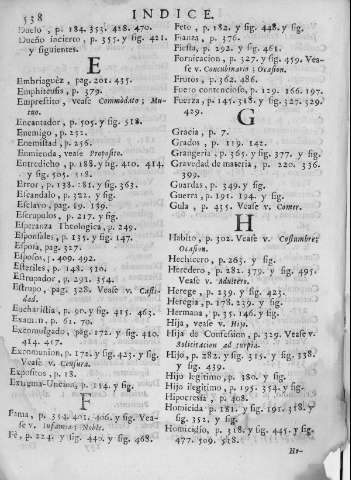 538
INDICE.
Duelo, p. 184. 353. 418. 470.
Dueño incierto, p. 355. y sig. 421.
y siguientes.
E
Embriaguèz, pag. 201. 435.
Emphiteusis, p. 379.
Emprestito, vease Commodato; Mu-
tuo.
Encantador, p. 505. y sig. 518.
Enemigo, p. 231.
Enemistad, p. 256.
Enmienda, vease Proposito.
Entredicho, p. 188. y sig. 410. 414.
y sig. 505. 518.
Error, p. 138. 181. y sig. 363.
Escandalo, p. 321. y sig.
Esclavo, pag. 89. 136.
Escrupulos, p. 217. y sig.
Esperanza Theologica, p. 249.
Esponsales, p. 135. y sig. 147.
Espora, pag. 327.
Esposos, p. 409. 492.
Esteriles, p. 148. 510.
Estrupador, p. 291. 354.
Estrupo, pag. 328. Vease v. Casti-
dad.
Eucharistia, p. 90. y sig. 415. 463.
Examen, p. 61. 70.
Excomulgado, pag. 172. y sig. 410.
414. 417.
Excomunion, p. 171. y sig. 423. y sig.
Vease v. Censura.
Expositos, p. 18.
Extrema-Uncion, p. 114. y sig.
F
Fama, p. 354. 401. 406. y sig. Vea-
se v. Infamia; Noble.
Fè, p. 224. y sig. 440. y sig. 468.
Feto, p. 182. y sig. 448. y sig.
Fianza, p. 376.
Fiesta, p. 292. y sig. 461.
Fornicacion, p. 327. y sig. 459. Vea-
se v. Concubinario; Ocasion.
Frutos, p. 362. 486.
Fuero contencioso, p. 129. 166. 197.
Fuerza, p. 145. 318. y sig. 327. 329.
429.
G
Gracia, p. 7.
Grados, p. 119. 142.
Grangeria, p. 365. y sig. 377. y sig.
Gravedad de materia, p. 220. 336.
399.
Guardas, p. 349. y sig.
Guerra, p. 191. 194. y sig.
Gula, p. 435. Vease v. Comer.
H
Habito, p. 302. Vease v. Costumbre;
Ocasion.
Hechicero, p. 263. y sig.
Heredero, p. 282. 379. y sig. 495.
Vease v. Adultero.
Herege, p. 239. y sig. 423.
Heregia, p. 178. 239. y sig.
Hermana, p. 35. 146. y sig.
Hija, vease v. Hijo.
Hija de Confession, p. 329. Vease v.
Solicitacion ad turpia.
Hijo, p. 282. y sig. 315. y sig. 338.
y sig. 439.
Hijo legitimo, p. 380. y sig.
Hijo ilegitimo, p. 195. 354. y sig.
Hipocresia, p. 408.
Homicida p. 181. y sig. 191. 318. y
sig. 352. y sig.
Homicidio, p. 318. y sig. 445. y sig.
477. 509. 518.
Hi-